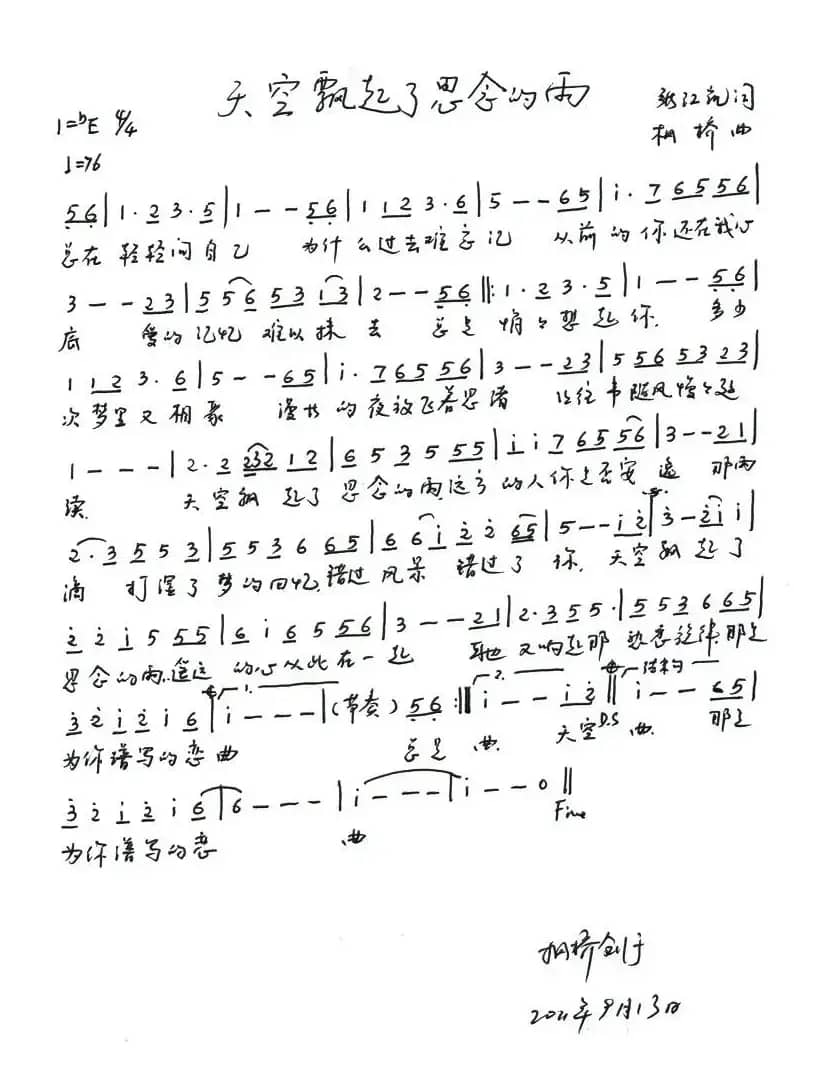 天空飘起了思念的雨
1=bE 4/4
词
桥曲
♩=76
56|1·23·5|1--56|1123·6|5--65|i·765556|
总在轻轻问自己 为什么过去难忘记 从前的你还在我心
3--23|5565313|2--56‖:1·23·5|1--56|
底 爱的记忆难以抹去 总是悄々想起你. 多少
1123·6|5--65|i·765556|3--23|5565323|
次梦里又相聚 漫长的夜放飞着思绪 让往事随风慢々延
1---|2·223212|6535555|ii765556|3--21|
续. 天空飘起了思念的雨,远方的人你是否安逸 那雨
2·3553|5536665|66i2265|5--i2|3-2ii|
滴打湿了梦的回忆,错过风景错过了你. 天空飘起了
22i555|6i65556|3--21|2·355·|5536665|
思念的雨,遥远的心从此在一起 又响起那 那是
1. 2. 结束
32i2i6|i---|(节奏)56:‖i--i2‖i--65|
为你谱写的恋曲 总是 曲. 天空D.S 曲. 那是
32i2i6|6---|i---|i--0‖
Fine
为你谱写的恋 曲
桥创于
2021年9月13日